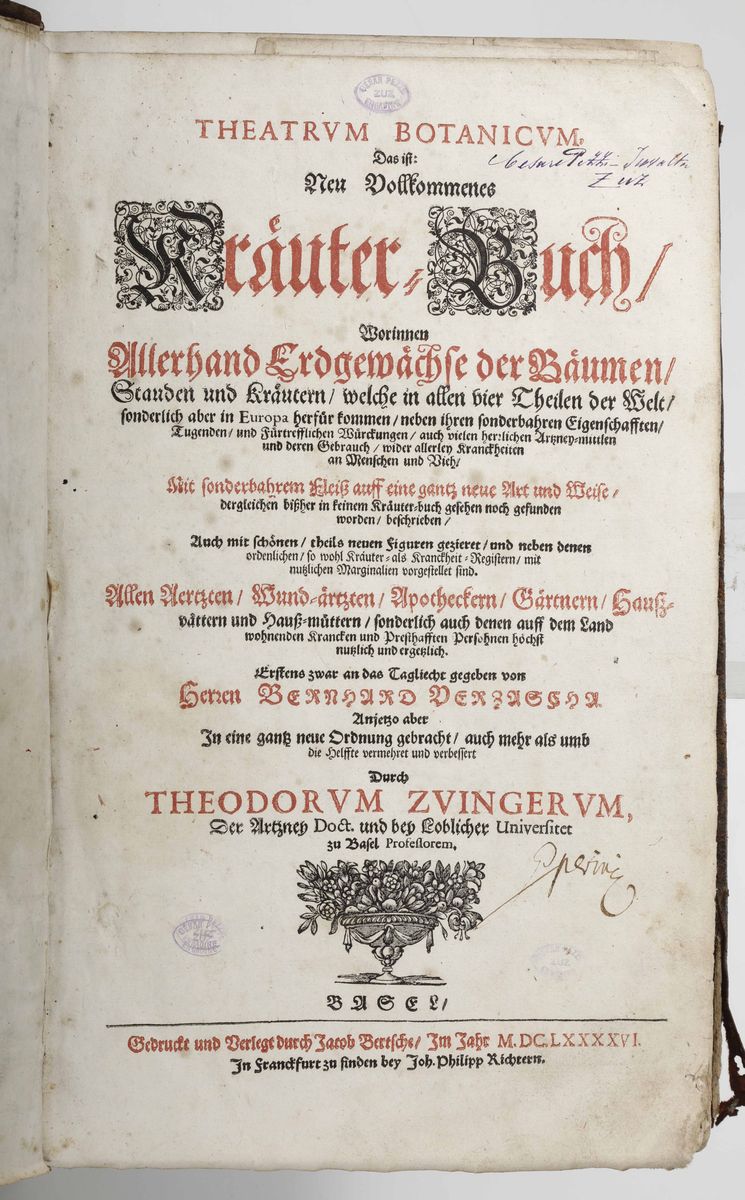 THEATRVM BOTANICVM.
Das ist:
Neu Vollkommenes
Kräuter-Buch/
Worinnen
Allerhand Erdgewächse der Bäumen/
Stauden und Kräutern/ welche in allen vier Theilen der Welt/
sonderlich aber in Europa herfür kommen/ neben ihren sonderbahren Eigenschafften/
Tugenden/ und Fürtrefflichen Würckungen/ auch vielen herrlichen Artzney-mitteln
und deren Gebrauch/ wider allerley Kranckheiten
an Menschen und Vieh/
Mit sonderbahrem Fleiß auff eine gantz neue Art und Weise/
dergleichen bißher in keinem Kräuter-buch gesehen noch gefunden
worden/ beschrieben/
Auch mit schönen/ theils neuen Figuren gezieret/ und neben denen
ordenlichen/ so wohl Kräuter- als Kranckheit-Registern/ mit
nutzlichen Marginalien vorgestellet sind.
Allen Aertzten/ Wund-ärtzten/ Apotheckern/ Gärtnern/ Hauß-
vättern und Hauß-müttern/ sonderlich auch denen auff dem Land
wohnenden Krancken und Presthafften Persohnen höchst
nutzlich und ergetzlich.
Erstens zwar an das Tagliecht gegeben von
Herren BERNHARD VERZASCHA
Anjetzo aber
In eine gantz neue Ordnung gebracht/ auch mehr als umb
die Helffte vermehret und verbessert
Durch
THEODORVM ZVINGERVM,
Der Artzney Doct. und bey Loblicher Universitet
zu Basel Professorem.
BASEL/
Gedruckt und Verlegt durch Jacob Bertsche/ Im Jahr M.DC.LXXXXVI.
In Franckfurt zu finden bey Joh. Philipp Richtern.